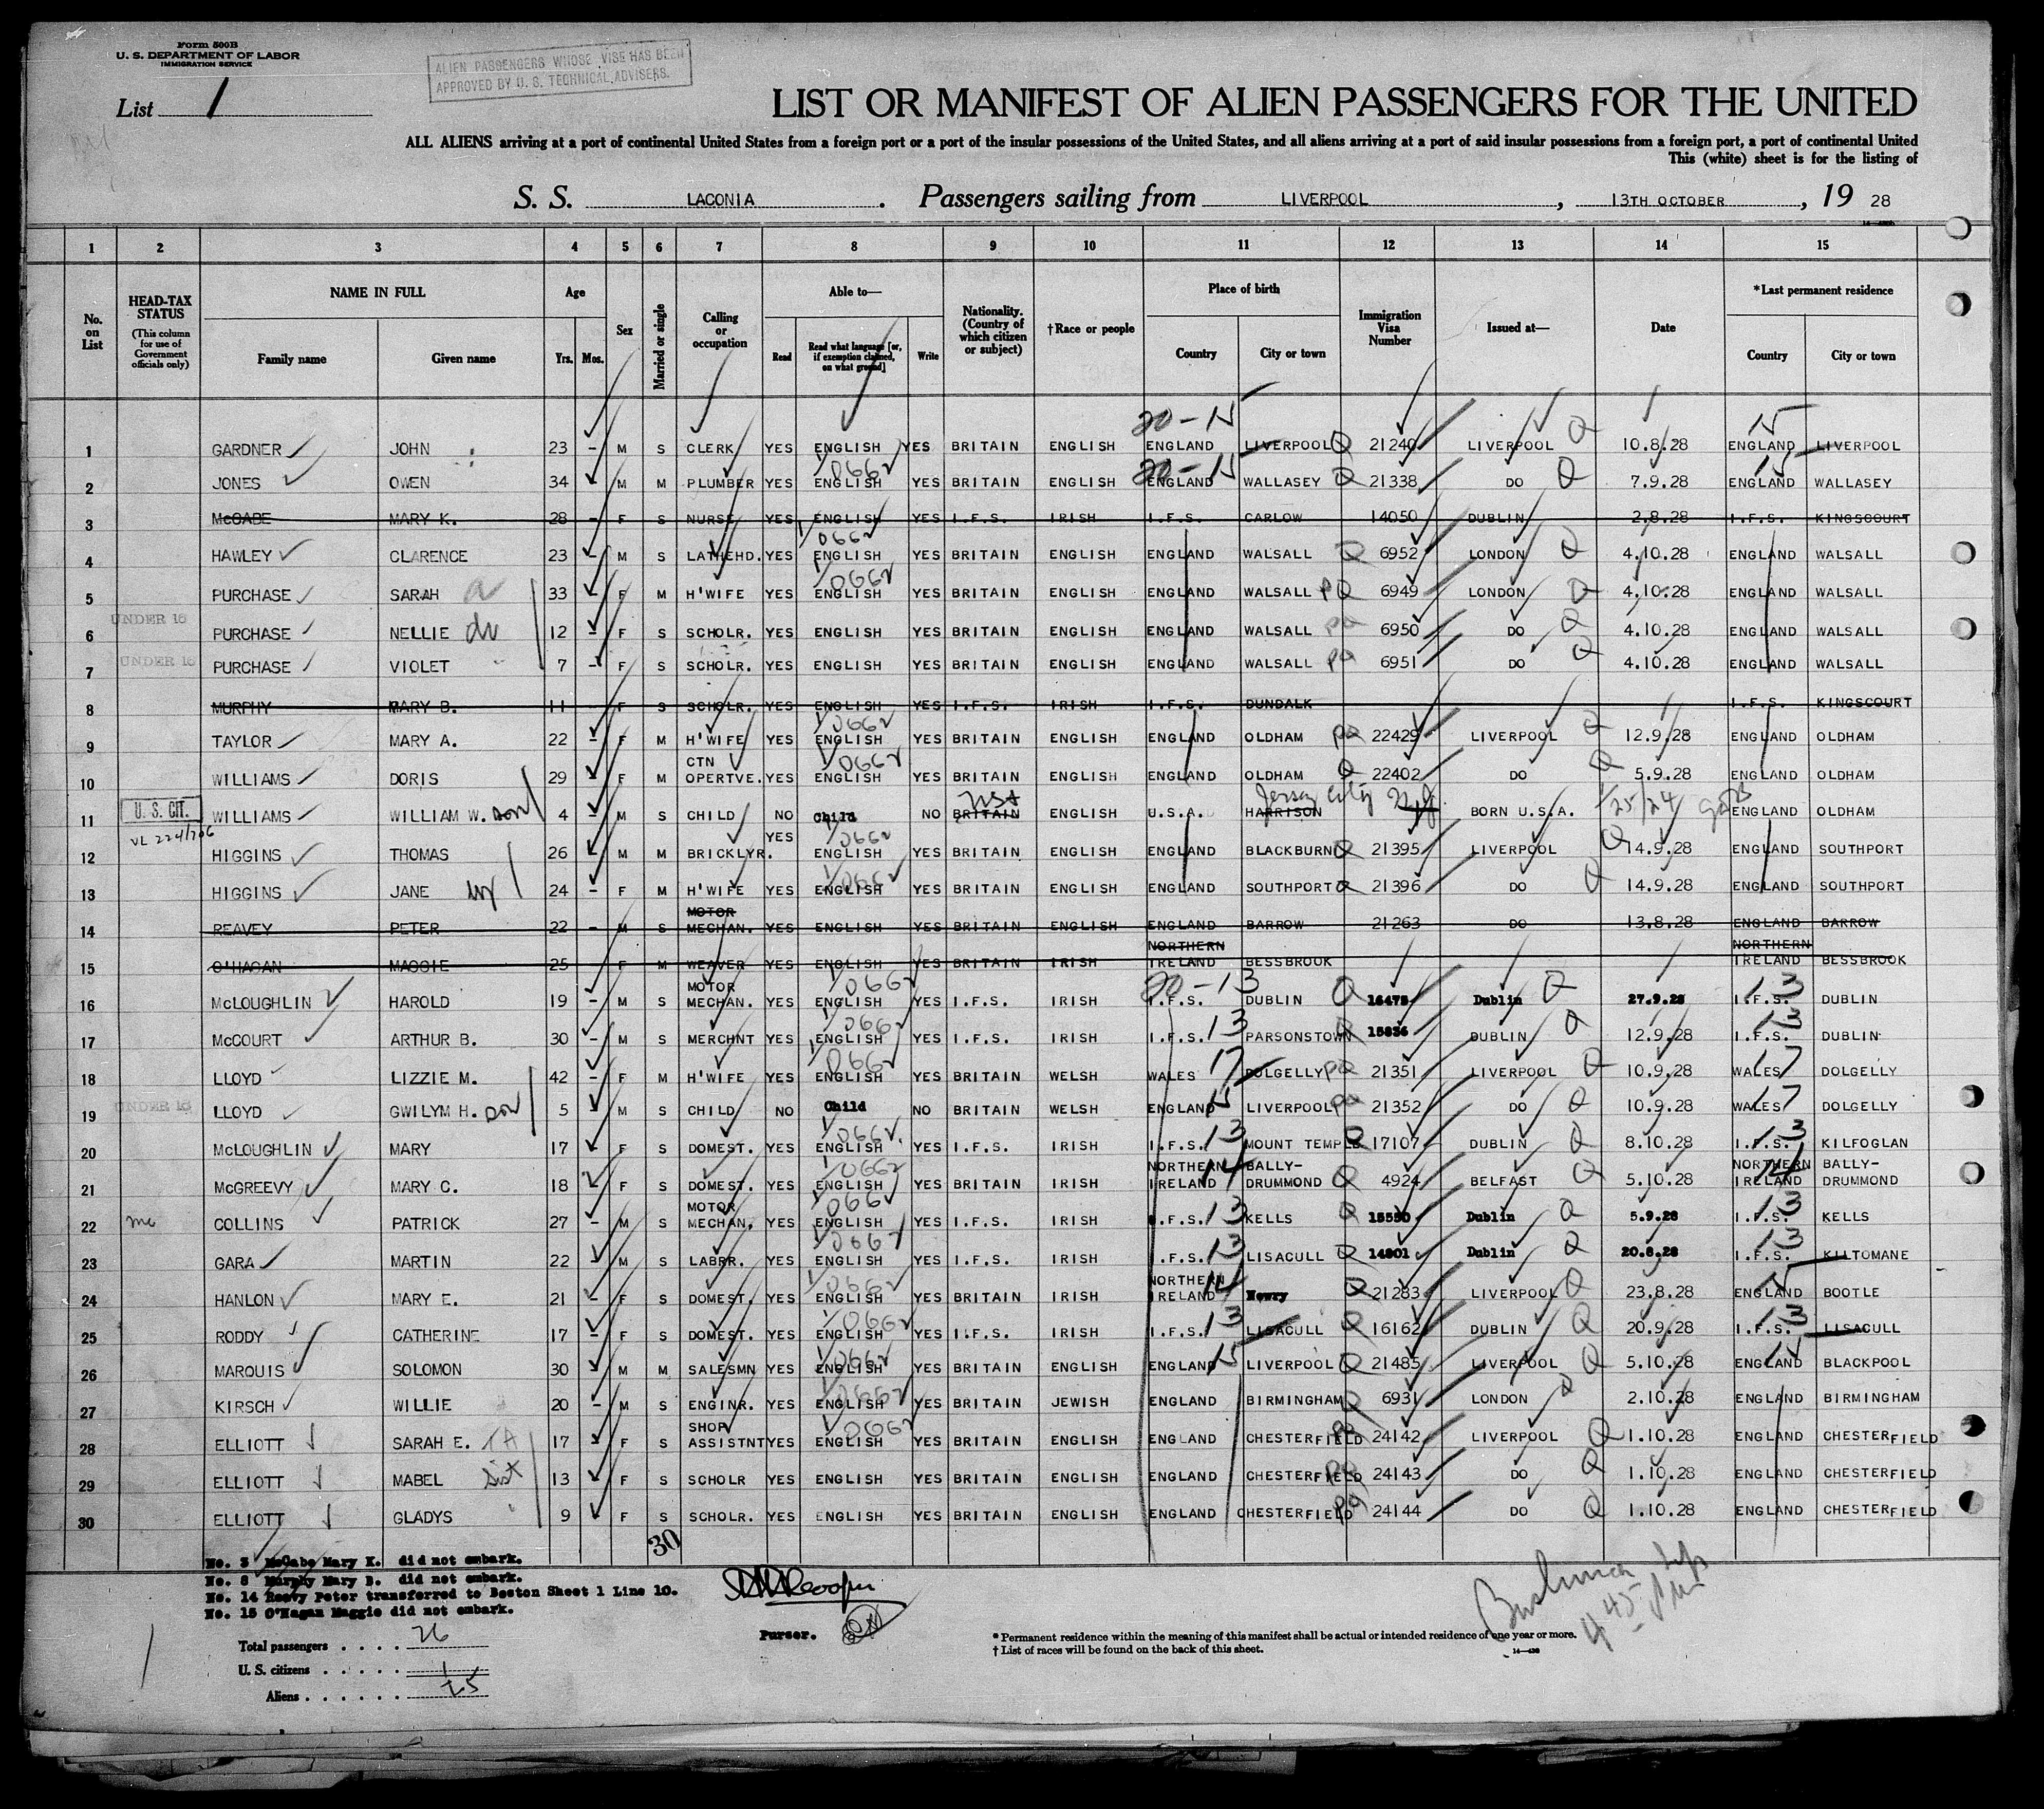 Form 500B
U. S. DEPARTMENT OF LABOR
IMMIGRATION SERVICE
ALIEN PASSENGERS WHOSE VISE HAS BEEN
APPROVED BY U. S. TECHNICAL ADVISERS.
List 1
LIST OR MANIFEST OF ALIEN PASSENGERS FOR THE UNITED
ALL ALIENS arriving at a port of continental United States from a foreign port or a port of the insular possessions of the United States, and all aliens arriving at a port of said insular possessions from a foreign port, a port of continental United
This (white) sheet is for the listing of
S. S. LACONIA. Passengers sailing from LIVERPOOL, 13TH OCTOBER, 19 28
1 2 3 4 5 6 7 8 9 10 11 12 13 14 15
No. on List HEAD-TAX STATUS (This column for use of Government officials only) NAME IN FULL Family name Given name Age Yrs. Mos. Sex Married or single Calling or occupation Able to— Read Read what language [or, if exemption claimed, on what ground] Write Nationality. (Country of which citizen or subject) †Race or people Place of birth Country City or town Immigration Visa Number Issued at— Date *Last permanent residence Country City or town
20-15 15
1 GARDNER JOHN 23 - M S CLERK YES ENGLISH YES BRITAIN ENGLISH ENGLAND LIVERPOOL Q 21240 LIVERPOOL Q 10.8.28 ENGLAND LIVERPOOL
1/0662 20-15 15
2 JONES OWEN 34 M M PLUMBER YES ENGLISH YES BRITAIN ENGLISH ENGLAND WALLASEY Q 21338 DO Q 7.9.28 ENGLAND WALLASEY
3 McCABE MARY K. 28 - F S NURSE YES ENGLISH YES I.F.S. IRISH I.F.S. CARLOW 14050 DUBLIN 2.8.28 I.F.S. KINGSCOURT
1/0662
4 HAWLEY CLARENCE 23 - M S LATHEHD. YES ENGLISH YES BRITAIN ENGLISH ENGLAND WALSALL Q 6952 LONDON Q 4.10.28 ENGLAND WALSALL
1/0662
5 PURCHASE SARAH 33 F M H'WIFE YES ENGLISH YES BRITAIN ENGLISH ENGLAND WALSALL PQ 6949 LONDON Q 4.10.28 ENGLAND WALSALL
UNDER 16
6 PURCHASE NELLIE 12 - F S SCHOLR. YES ENGLISH YES BRITAIN ENGLISH ENGLAND WALSALL PQ 6950 DO Q 4.10.28 ENGLAND WALSALL
UNDER 16
7 PURCHASE VIOLET 7 - F S SCHOLR. YES ENGLISH YES BRITAIN ENGLISH ENGLAND WALSALL PQ 6951 DO Q 4.10.28 ENGLAND WALSALL
8 MURPHY MARY B. 11 - F S SCHOLR. YES ENGLISH YES I.F.S. IRISH I.F.S. DUNDALK I.F.S. KINGSCOURT
1/0662
9 TAYLOR MARY A. 22 - F M H'WIFE YES ENGLISH YES BRITAIN ENGLISH ENGLAND OLDHAM PQ 22429 LIVERPOOL Q 12.9.28 ENGLAND OLDHAM
CTN 1/0662
10 WILLIAMS DORIS 29 F M OPERTVE. YES ENGLISH YES BRITAIN ENGLISH ENGLAND OLDHAM Q 22402 DO Q 5.9.28 ENGLAND OLDHAM
U. S. CIT. USA Jersey City NJ 1/25/24
11 WILLIAMS WILLIAM W. son 4 - M S CHILD NO Child NO BRITAIN ENGLISH U.S.A. HARRISON BORN U.S.A. ENGLAND OLDHAM
VL 224/206 YES 1/0662
12 HIGGINS THOMAS 26 M M BRICKLYR. ENGLISH YES BRITAIN ENGLISH ENGLAND BLACKBURN Q 21395 LIVERPOOL Q 14.9.28 ENGLAND SOUTHPORT
1/0662
13 HIGGINS JANE wf 24 - F M H'WIFE YES ENGLISH YES BRITAIN ENGLISH ENGLAND SOUTHPORT Q 21396 DO Q 14.9.28 ENGLAND SOUTHPORT
MOTOR
14 REAVEY PETER 22 - M S MECHAN. YES ENGLISH YES BRITAIN ENGLISH ENGLAND BARROW 21263 DO 13.8.28 ENGLAND BARROW
NORTHERN NORTHERN
15 O'HAGAN MAGGIE 25 F M WEAVER YES ENGLISH YES BRITAIN IRISH IRELAND BESSBROOK IRELAND BESSBROOK
MOTOR 1/0662 20-13 13
16 McLOUGHLIN HAROLD 19 - M S MECHAN. YES ENGLISH YES I.F.S. IRISH I.F.S. DUBLIN Q 16475 Dublin Q 27.9.28 I.F.S. DUBLIN
1/0662 13 13
17 McCOURT ARTHUR B. 30 - M S MERCHNT YES ENGLISH YES I.F.S. IRISH I.F.S. PARSONSTOWN 15836 DUBLIN Q 12.9.28 I.F.S. DUBLIN
1/0662 17 17
18 LLOYD LIZZIE M. 42 - F M H'WIFE YES ENGLISH YES BRITAIN WELSH WALES DOLGELLY PQ 21351 LIVERPOOL Q 10.9.28 WALES DOLGELLY
UNDER 16 15 17
19 LLOYD GWILYM H. son 5 M S CHILD NO Child NO BRITAIN WELSH ENGLAND LIVERPOOL PQ 21352 DO Q 10.9.28 WALES DOLGELLY
1/0662 13 13
20 McLOUGHLIN MARY 17 F S DOMEST. YES ENGLISH YES I.F.S. IRISH I.F.S. MOUNT TEMPLE 17107 DUBLIN Q 8.10.28 I.F.S. KILFOGLAN
1/0662 NORTHERN 14 BALLY- NORTHERN 14 BALLY-
21 McGREEVY MARY C. 18 F S DOMEST. YES ENGLISH YES BRITAIN IRISH IRELAND DRUMMOND Q 4924 BELFAST Q 5.10.28 IRELAND DRUMMOND
MOTOR 1/0662 13 13
22 mc COLLINS PATRICK 27 - M S MECHAN. YES ENGLISH YES I.F.S. IRISH I.F.S. KELLS Q 15550 Dublin Q 5.9.28 I.F.S. KELLS
1/0662 13 13
23 GARA MARTIN 22 M S LABRR. YES ENGLISH YES I.F.S. IRISH I.F.S. LISACULL Q 14801 Dublin Q 20.8.28 I.F.S. KILTOMANE
1/0662 NORTHERN 14 15
24 HANLON MARY E. 21 - F S DOMEST. YES ENGLISH YES BRITAIN IRISH IRELAND Newry Q 21283 LIVERPOOL Q 23.8.28 ENGLAND BOOTLE
1/0662 13 13
25 RODDY CATHERINE 17 - F S DOMEST. YES ENGLISH YES I.F.S. IRISH I.F.S. LISACULL Q 16162 DUBLIN Q 20.9.28 I.F.S. LISACULL
1/0662 15 15
26 MARQUIS SOLOMON 30 M M SALESMN YES ENGLISH YES BRITAIN ENGLISH ENGLAND LIVERPOOL Q 21485 LIVERPOOL Q 5.10.28 ENGLAND BLACKPOOL
1/0662
27 KIRSCH WILLIE 20 - M S ENGINR. YES ENGLISH YES BRITAIN JEWISH ENGLAND BIRMINGHAM Q 6931 LONDON Q 2.10.28 ENGLAND BIRMINGHAM
SHOP 1/0662
28 ELLIOTT SARAH E. 17 - F S ASSISTNT YES ENGLISH YES BRITAIN ENGLISH ENGLAND CHESTERFIELD PQ 24142 LIVERPOOL Q 1.10.28 ENGLAND CHESTERFIELD
29 ELLIOTT MABEL sist 13 F S SCHOLR YES ENGLISH YES BRITAIN ENGLISH ENGLAND CHESTERFIELD PQ 24143 DO Q 1.10.28 ENGLAND CHESTERFIELD
30 ELLIOTT GLADYS " 9 F S SCHOLR. YES ENGLISH YES BRITAIN ENGLISH ENGLAND CHESTERFIELD PQ 24144 DO Q 1.10.28 ENGLAND CHESTERFIELD
30
No. 3 McCabe Mary K. did not embark.
No. 8 Murphy Mary B. did not embark.
No. 14 Reavy Peter transferred to Boston Sheet 1 Line 10.
No. 15 O'Hagan Maggie did not embark.
Purser.
Total passengers . . . . 26
U. S. citizens . . . . . 1
Aliens . . . . . . 25
* Permanent residence within the meaning of this manifest shall be actual or intended residence of one year or more.
† List of races will be found on the back of this sheet.